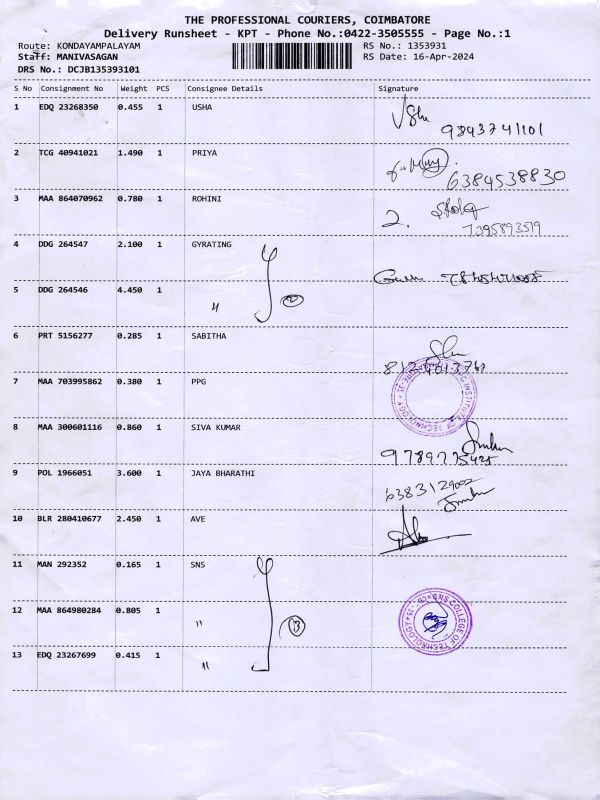 THE PROFESSIONAL COURIERS, COIMBATORE
Delivery Runsheet - KPT - Phone No.:0422-3505555 - Page No.:1
Route: KONDAYAMPALAYAM RS No.: 1353931
Staff: MANIVASAGAN RS Date: 16-Apr-2024
DRS No.: DCJB135393101
S No Consignment No Weight PCS Consignee Details Signature
1 EDQ 23268350 0.455 1 USHA
9843741101
2 TCG 40941021 1.490 1 PRIYA
6384538830
3 MAA 864070962 0.780 1 ROHINI
2.
7395893519
4 DDG 264547 2.100 1 GYRATING
5 DDG 264546 4.450 1 "
2
6 PRT 5156277 0.285 1 SABITHA
7 MAA 703995862 0.380 1 PPG
INSTITUTE OF TECHNOLOGY
8 MAA 300601116 0.860 1 SIVA KUMAR
9789775425
9 POL 1966051 3.600 1 JAYA BHARATHI
6383129002
10 BLR 280410677 2.450 1 AVE
11 MAN 292352 0.165 1 SNS
12 MAA 864980284 0.805 1 "
3
SNS COLLEGE OF TECHNOLOGY
13 EDQ 23267699 0.415 1 "